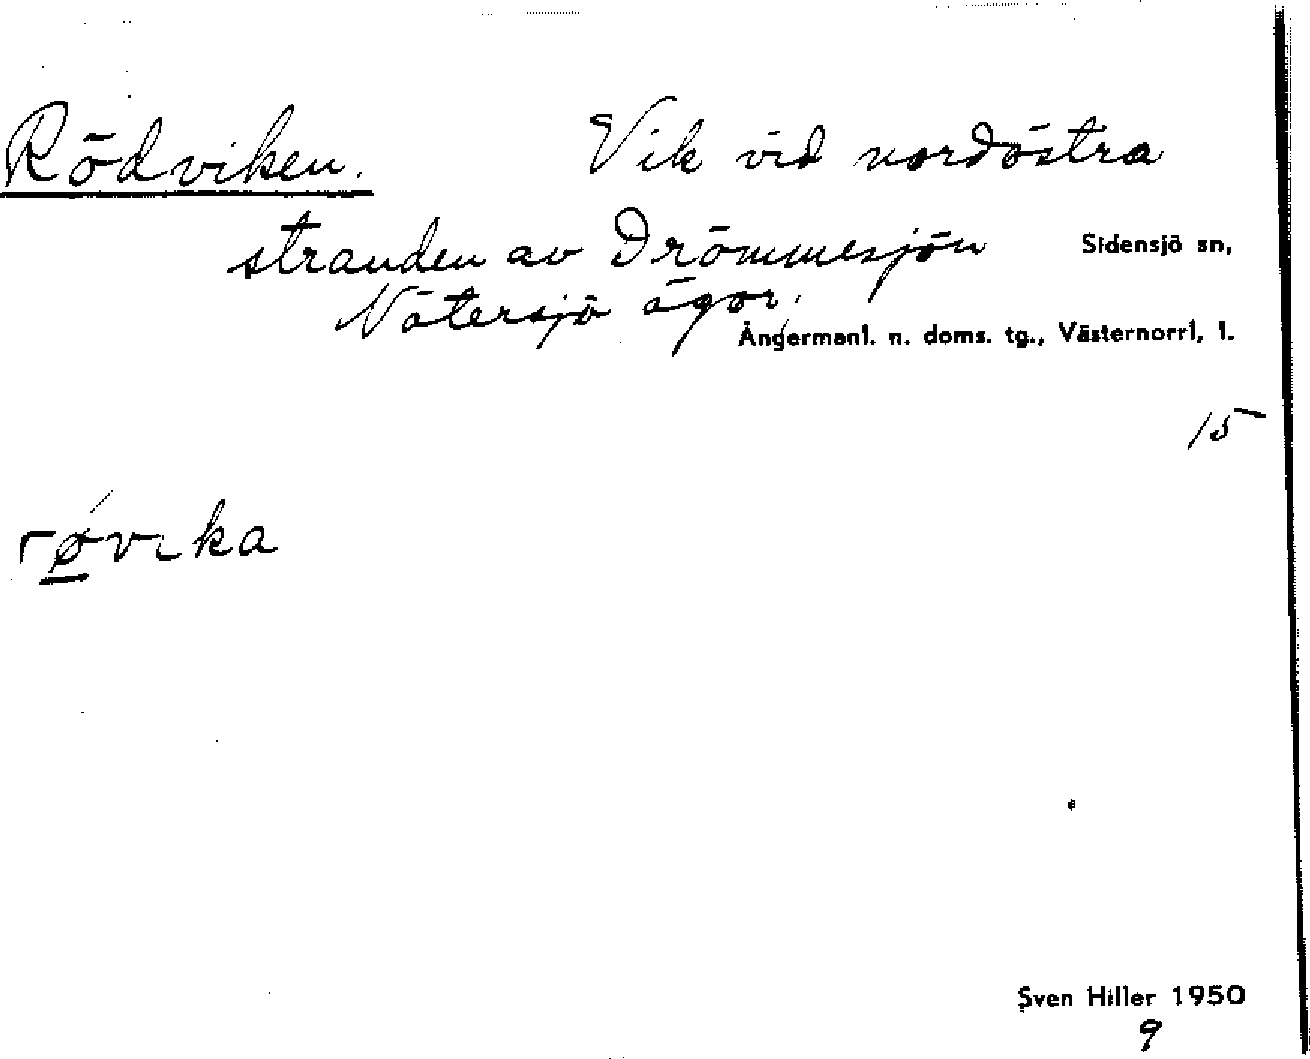 Rödviken. Vik vid nordöstra
stranden av Drömmesjön
Sidensjö sn,
Nätersjö ägor.
Ångermanl. n. doms. tg., Västernorrl, l.
15
røvika
Sven Hiller 1950
9